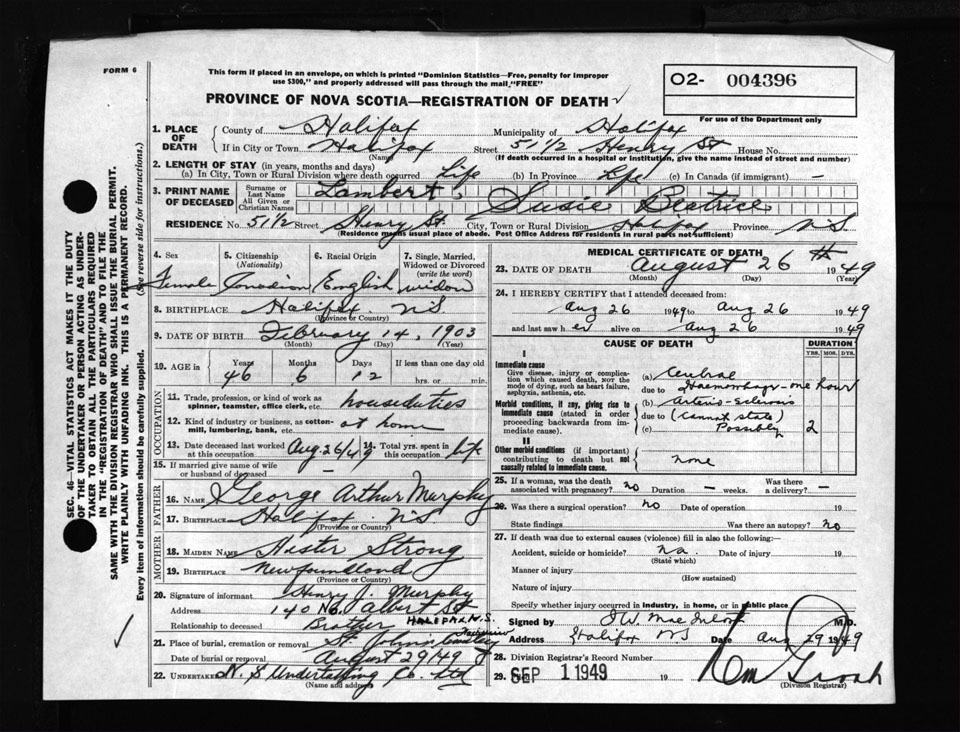 FORM 6
This form if placed in an envelope, on which is printed "Dominion Statistics—Free, penalty for improper
use $300," and properly addressed will pass through the mail "FREE"
PROVINCE OF NOVA SCOTIA—REGISTRATION OF DEATH
02- 004396
For use of the Department only
1. PLACE OF DEATH
County of Halifax Municipality of Halifax
If in City or Town Halifax Street 51 1/2 Henry St House No.
(Name) (If death occurred in a hospital or institution, give the name instead of street and number)
2. LENGTH OF STAY (in years, months and days)
(a) In City, Town or Rural Division where death occurred Life (b) In Province Life (c) In Canada (if immigrant) —
3. PRINT NAME OF DECEASED
Surname or Last Name Lambert
All Given or Christian Names Susie Beatrice
RESIDENCE No. 51 1/2 Street Henry St. City, Town or Rural Division Halifax Province N.S.
(Residence means usual place of abode. Post Office Address for residents in rural parts not sufficient)
4. Sex 5. Citizenship (Nationality) 6. Racial Origin 7. Single, Married, Widowed or Divorced (write the word)
Female Canadian English widow
8. BIRTHPLACE Halifax N.S.
(Province or Country)
9. DATE OF BIRTH February 14, 1903
(Month) (Day) (Year)
10. AGE in Years Months Days If less than one day old
46 6 12 hrs. or min.
OCCUPATION
11. Trade, profession, or kind of work as
spinner, teamster, office clerk, etc. houseduties
12. Kind of industry or business, as cotton-
mill, lumbering, bank, etc. at home
13. Date deceased last worked at this occupation Aug 26/49 14. Total yrs. spent in this occupation life
15. If married give name of wife
or husband of deceased —
FATHER
16. NAME George Arthur Murphy
17. BIRTHPLACE Halifax N.S.
(Province or Country)
MOTHER
18. MAIDEN NAME Hester Strong
19. BIRTHPLACE Newfoundland
(Province or Country)
20. Signature of informant Henry J. Murphy
Address 140 No. Albert St
HALIFAX N.S.
Relationship to deceased Brother
21. Place of burial, cremation or removal St. John's Cemetery
Date of burial or removal August 29/49
22. UNDERTAKER N. S Undertaking Co. Ltd
(Name and address)
MEDICAL CERTIFICATE OF DEATH
23. DATE OF DEATH August 26th 1949
(Month) (Day) (Year)
24. I HEREBY CERTIFY that I attended deceased from:
Aug 26 1949 to Aug 26 1949
and last saw her alive on Aug 26 1949
CAUSE OF DEATH DURATION
YRS. MOS. DYS.
I
Immediate cause
Give disease, injury or complication which caused death, NOT the mode of dying, such as heart failure, asphyxia, asthenia, etc.
(a)
due to Haemorrhage - one hour
Morbid conditions, if any, giving rise to immediate cause (stated in order proceeding backwards from immediate cause).
(b) Arterio-sclerosis
due to (cannot state)
(c) Possibly 2
II
Other morbid conditions (if important) contributing to death but not causally related to immediate cause.
none
25. If a woman, was the death associated with pregnancy? no Duration — weeks. Was there a delivery? —
26. Was there a surgical operation? no Date of operation 19
State findings Was there an autopsy? no
27. If death was due to external causes (violence) fill in also the following:—
Accident, suicide or homicide? na. Date of injury 19
(State which)
Manner of injury
(How sustained)
Nature of injury
Specify whether injury occurred in industry, in home, or in public place
Signed by M.D.
Address Halifax NS Date Aug 29 1949
28. Division Registrar's Record Number
29. SEP 1 1949 19
(Division Registrar)
SEC. 46—VITAL STATISTICS ACT MAKES IT THE DUTY
OF THE UNDERTAKER OR PERSON ACTING AS UNDER-
TAKER TO OBTAIN ALL THE PARTICULARS REQUIRED
IN THE "REGISTRATION OF DEATH" AND TO FILE THE
SAME WITH THE DIVISION REGISTRAR WHO SHALL ISSUE THE BURIAL PERMIT.
WRITE PLAINLY WITH UNFADING INK. THIS IS A PERMANENT RECORD.
Every item of information should be carefully supplied. (See reverse side for instructions.)